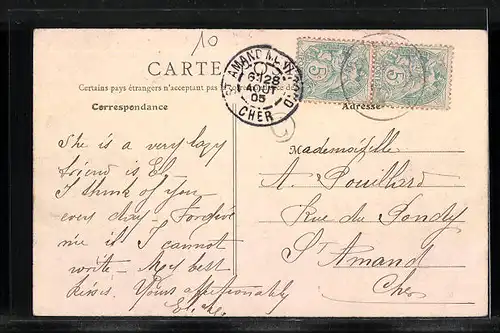 10
CARTE
Certains pays étrangers n'acceptent pas
Correspondance
Adresse
ST AMAND M.
6 28
AOUT
05
CHER
5
5
She is a very lazy
friend is El
I think of you
every day - Forgive
me if I cannot
write - My best
kisses. Yours affectionately
Mademoiselle
A. Pouillard
Rue du Pondy
St Amand
Cher